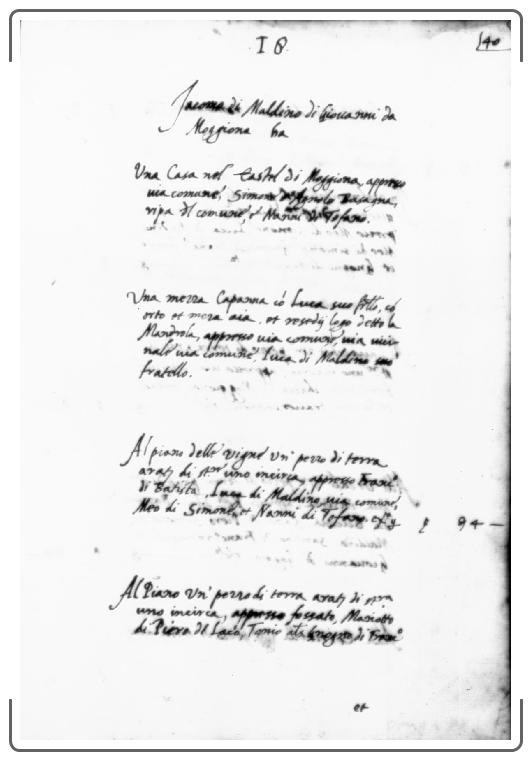 18
40
Jacomo di Maldino di Giovanni da
Moggiona ha
Una Casa nel Castel di Moggiona, appresso
via comune, Simone d'Agnolo Basagna,
ripa del comune, et Nanni di Tofano.
Una mezza Capanna cō Luca suo frllo, cō
orto et meza aia, et resedij logo detto la
Mandrola, appresso via comune, via vici-
nale via comune, Luca di Maldino suo
fratello.
Al piano delle vigne un' pezzo di terra
aratj di str uno incirca, appresso Franc
di Batista, Luca di Maldino via comune,
Meo di Simone, et Nanni di Tofano.
94 —
Al Piano un' pezzo di terra aratj di stra
uno incirca, appresso fossato, Mariotto
di Piero del Laca, Tonio di Franco
et